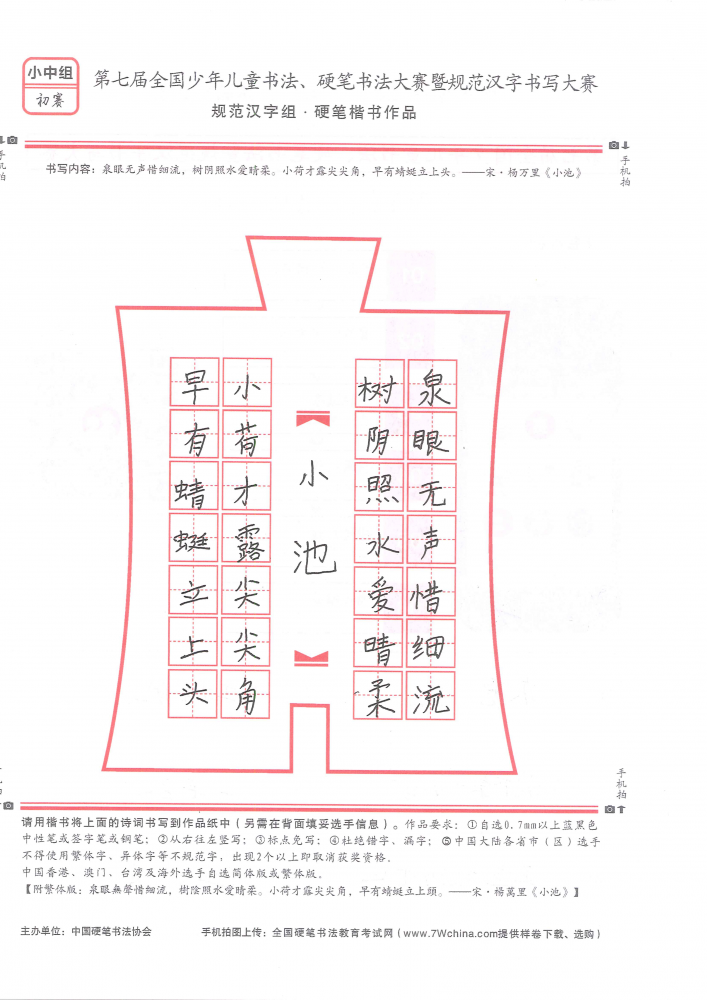 小中组
初赛
第七届全国少年儿童书法、硬笔书法大赛暨规范汉字书写大赛
规范汉字组·硬笔楷书作品
手机拍
手机拍
书写内容：泉眼无声惜细流，树阴照水爱晴柔。小荷才露尖尖角，早有蜻蜓立上头。——宋·杨万里《小池》
泉眼无声惜细流
树阴照水爱晴柔
小池
小荷才露尖尖角
早有蜻蜓立上头
手机拍
请用楷书将上面的诗词书写到作品纸中（另需在背面填妥选手信息）。作品要求：①自选0.7mm以上蓝黑色
中性笔或签字笔或钢笔；②从右往左竖写；③标点免写；④杜绝错字、漏字；⑤中国大陆各省市（区）选手
不得使用繁体字、异体字等不规范字，出现2个以上即取消获奖资格．
中国香港、澳门、台湾及海外选手自选简体版或繁体版．
【附繁体版：泉眼無聲惜細流，樹陰照水愛晴柔。小荷才露尖尖角，早有蜻蜓立上頭。——宋·楊萬里《小池》】
主办单位：中国硬笔书法协会
手机拍图上传：全国硬笔书法教育考试网（www.7Wchina.com提供样卷下载、选购）